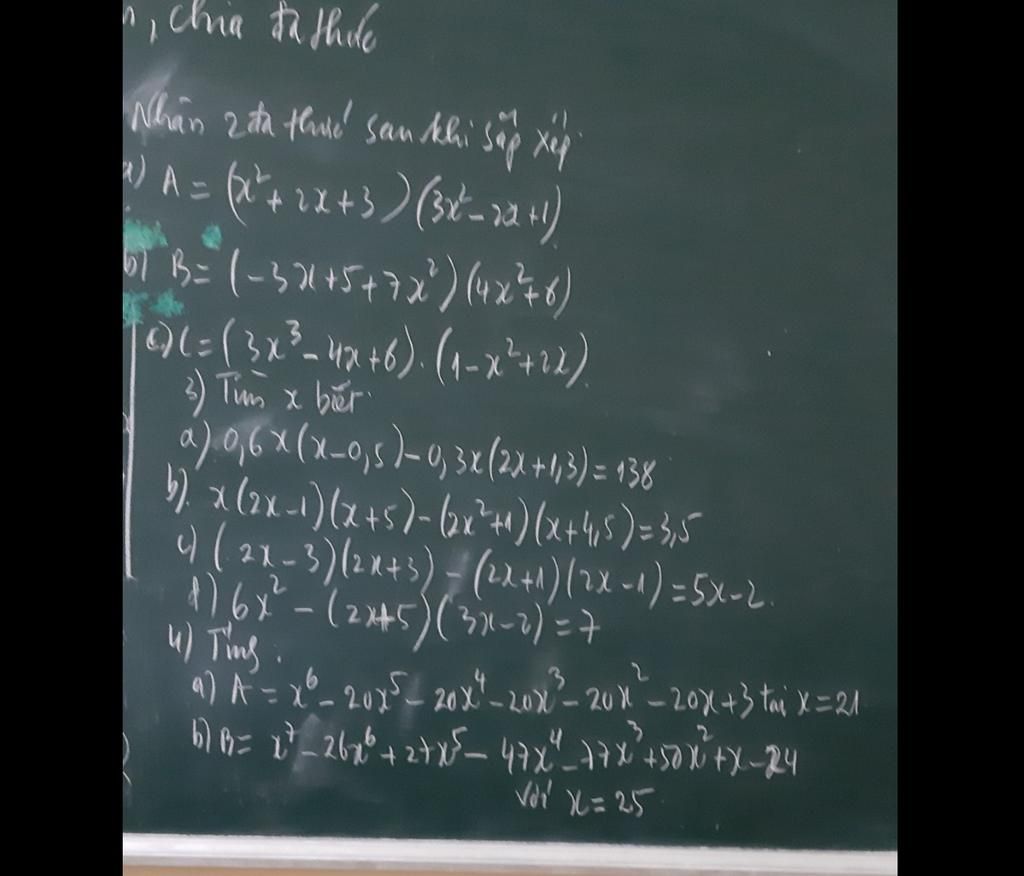 , chia đa thức
Nhân 2 đa thức sau khi sắp xếp
a) A = (x² + 2x + 3)(3x² - 2x + 1)
b) B = (-3x + 5 + 7x²)(4x² + 6)
c) C = (3x³ - 4x + 6).(1 - x² + 2x)
3) Tìm x biết
a) 0,6x(x - 0,5) - 0,3x(2x + 1,3) = 138
b) x(2x - 1)(x + 5) - (2x² + 1)(x + 4,5) = 3,5
c) (2x - 3)(2x + 3) - (2x + 1)(2x - 1) = 5x - 2.
d) 6x² - (2x + 5)(3x - 2) = 7
4) Tính.
a) A = x⁶ - 20x⁵ - 20x⁴ - 20x³ - 20x² - 20x + 3 tại x = 21
b) B = x⁷ - 26x⁶ + 27x⁵ - 47x⁴ - 77x³ + 50x² + x - 24
với x = 25